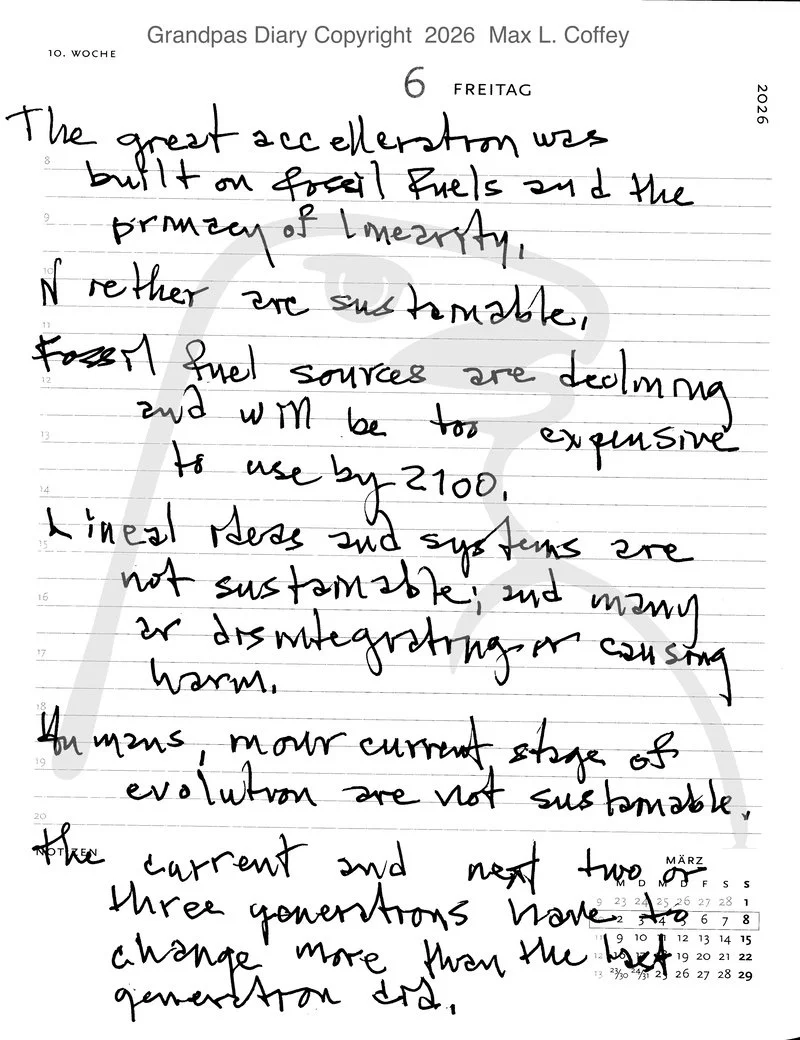 Grandpas Diary Copyright 2026 Max L. Coffey
10. WOCHE
6 FREITAG
2026
The great accelleration was
8
built on fossil fuels and the
9
primacy of linearity.
10
Neither are sustainable.
11
Fossil fuel sources are declining
12
and will be too expensive
13
to use by 2100.
14
Lineal ideas and systems are
15
not sustainable; and many
16
ar disintegrating or causing
17
harm.
18
Humans, in our current stage of
19
evolution are not sustainable.
20
NOTIZEN
The current and next two or
three generations have to
change more than the last
generation did.
MÄRZ
M D M D F S S
9 23 24 25 26 27 28 1
2 3 4 5 6 7 8
11 9 10 11 12 13 14 15
12 16 17 18 19 20 21 22
13 23/30 24/31 25 26 27 28 29